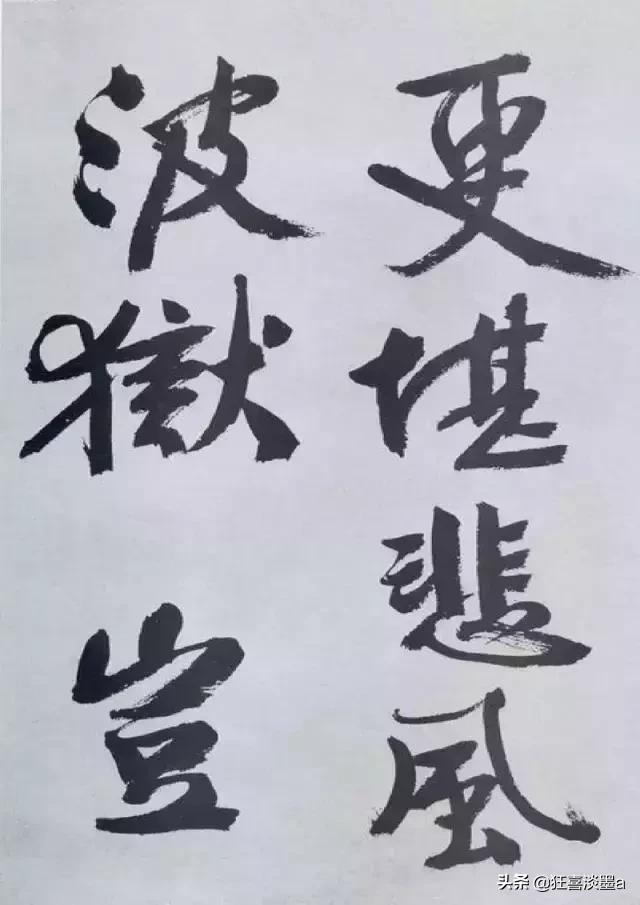 更堪悲風
波獄豈
头条 @狂喜淡墨a